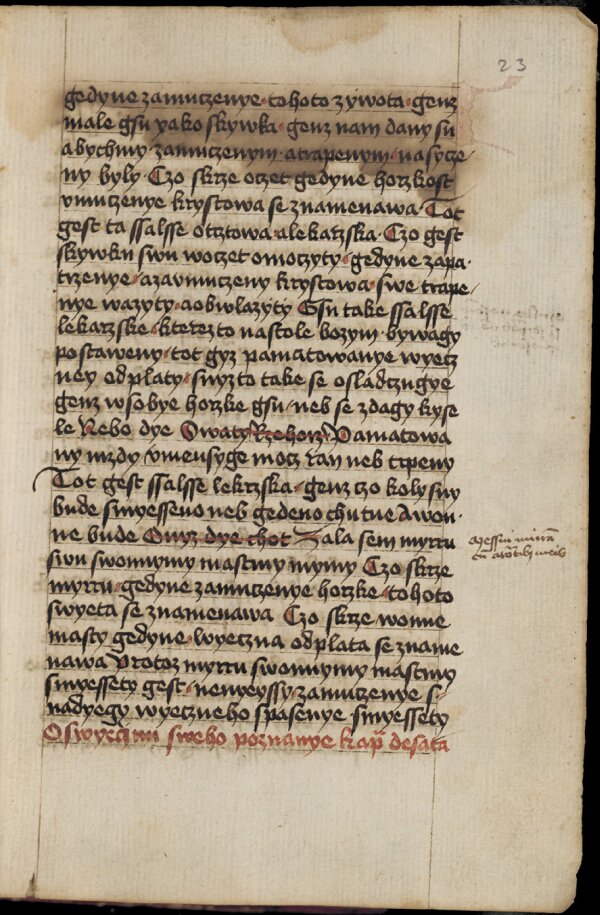 23
gedyne zamuczenye · tohoto zywota · genz
male gsu yako skywka · genz nam dany su
abychmy · zamuczenym · atrapenym · nasycze
ny byly · Czo skrze oczet gedyne horzkost
vmuczenye krystowa se znamenawa · Tot
gest ta ssalsse otcztowa · alekarzska · Czo gest
skywku swu woczet omoczyty · gedyne zapa
trzenye · azavmuczeny krystowa · swe trape
nye wazyty · aobwlazyty Gsu take ssalsse
lekarzske · kterezto nastole bozym · bywagy
postaweny · tot gyz pamatowanye wyecz
ney odplaty · snyzto take se osladczugye
genz wsobye horzke gsu · neb se zdagy kyse
le Nebo dye Swaty Rzehorz Pamatowa
ny mzdy vmensyge mocz ran neb trpeny
Tot gest ssalsse lekrzska · genz czo koly sny
bude smyesseno neb gedeno chutne Awon
ne bude Onyz dye chot Zala sem myrru
swu swonnymy mastmy mymy Czo skrze
myrru · gedyne zamuczenye horzke · tohoto
swyeta se znamenawa Czo skrze wonne
masty gedyne · lwyeczna odplata se zname
nawa Protoz myrru swonnymy mastmy
smyessety gest · neweyssy zamuczenye s
nadyegy wyeczneho spasenye smyessety
Messui mirrā
O swyeczinu sweho poznanye kap desata